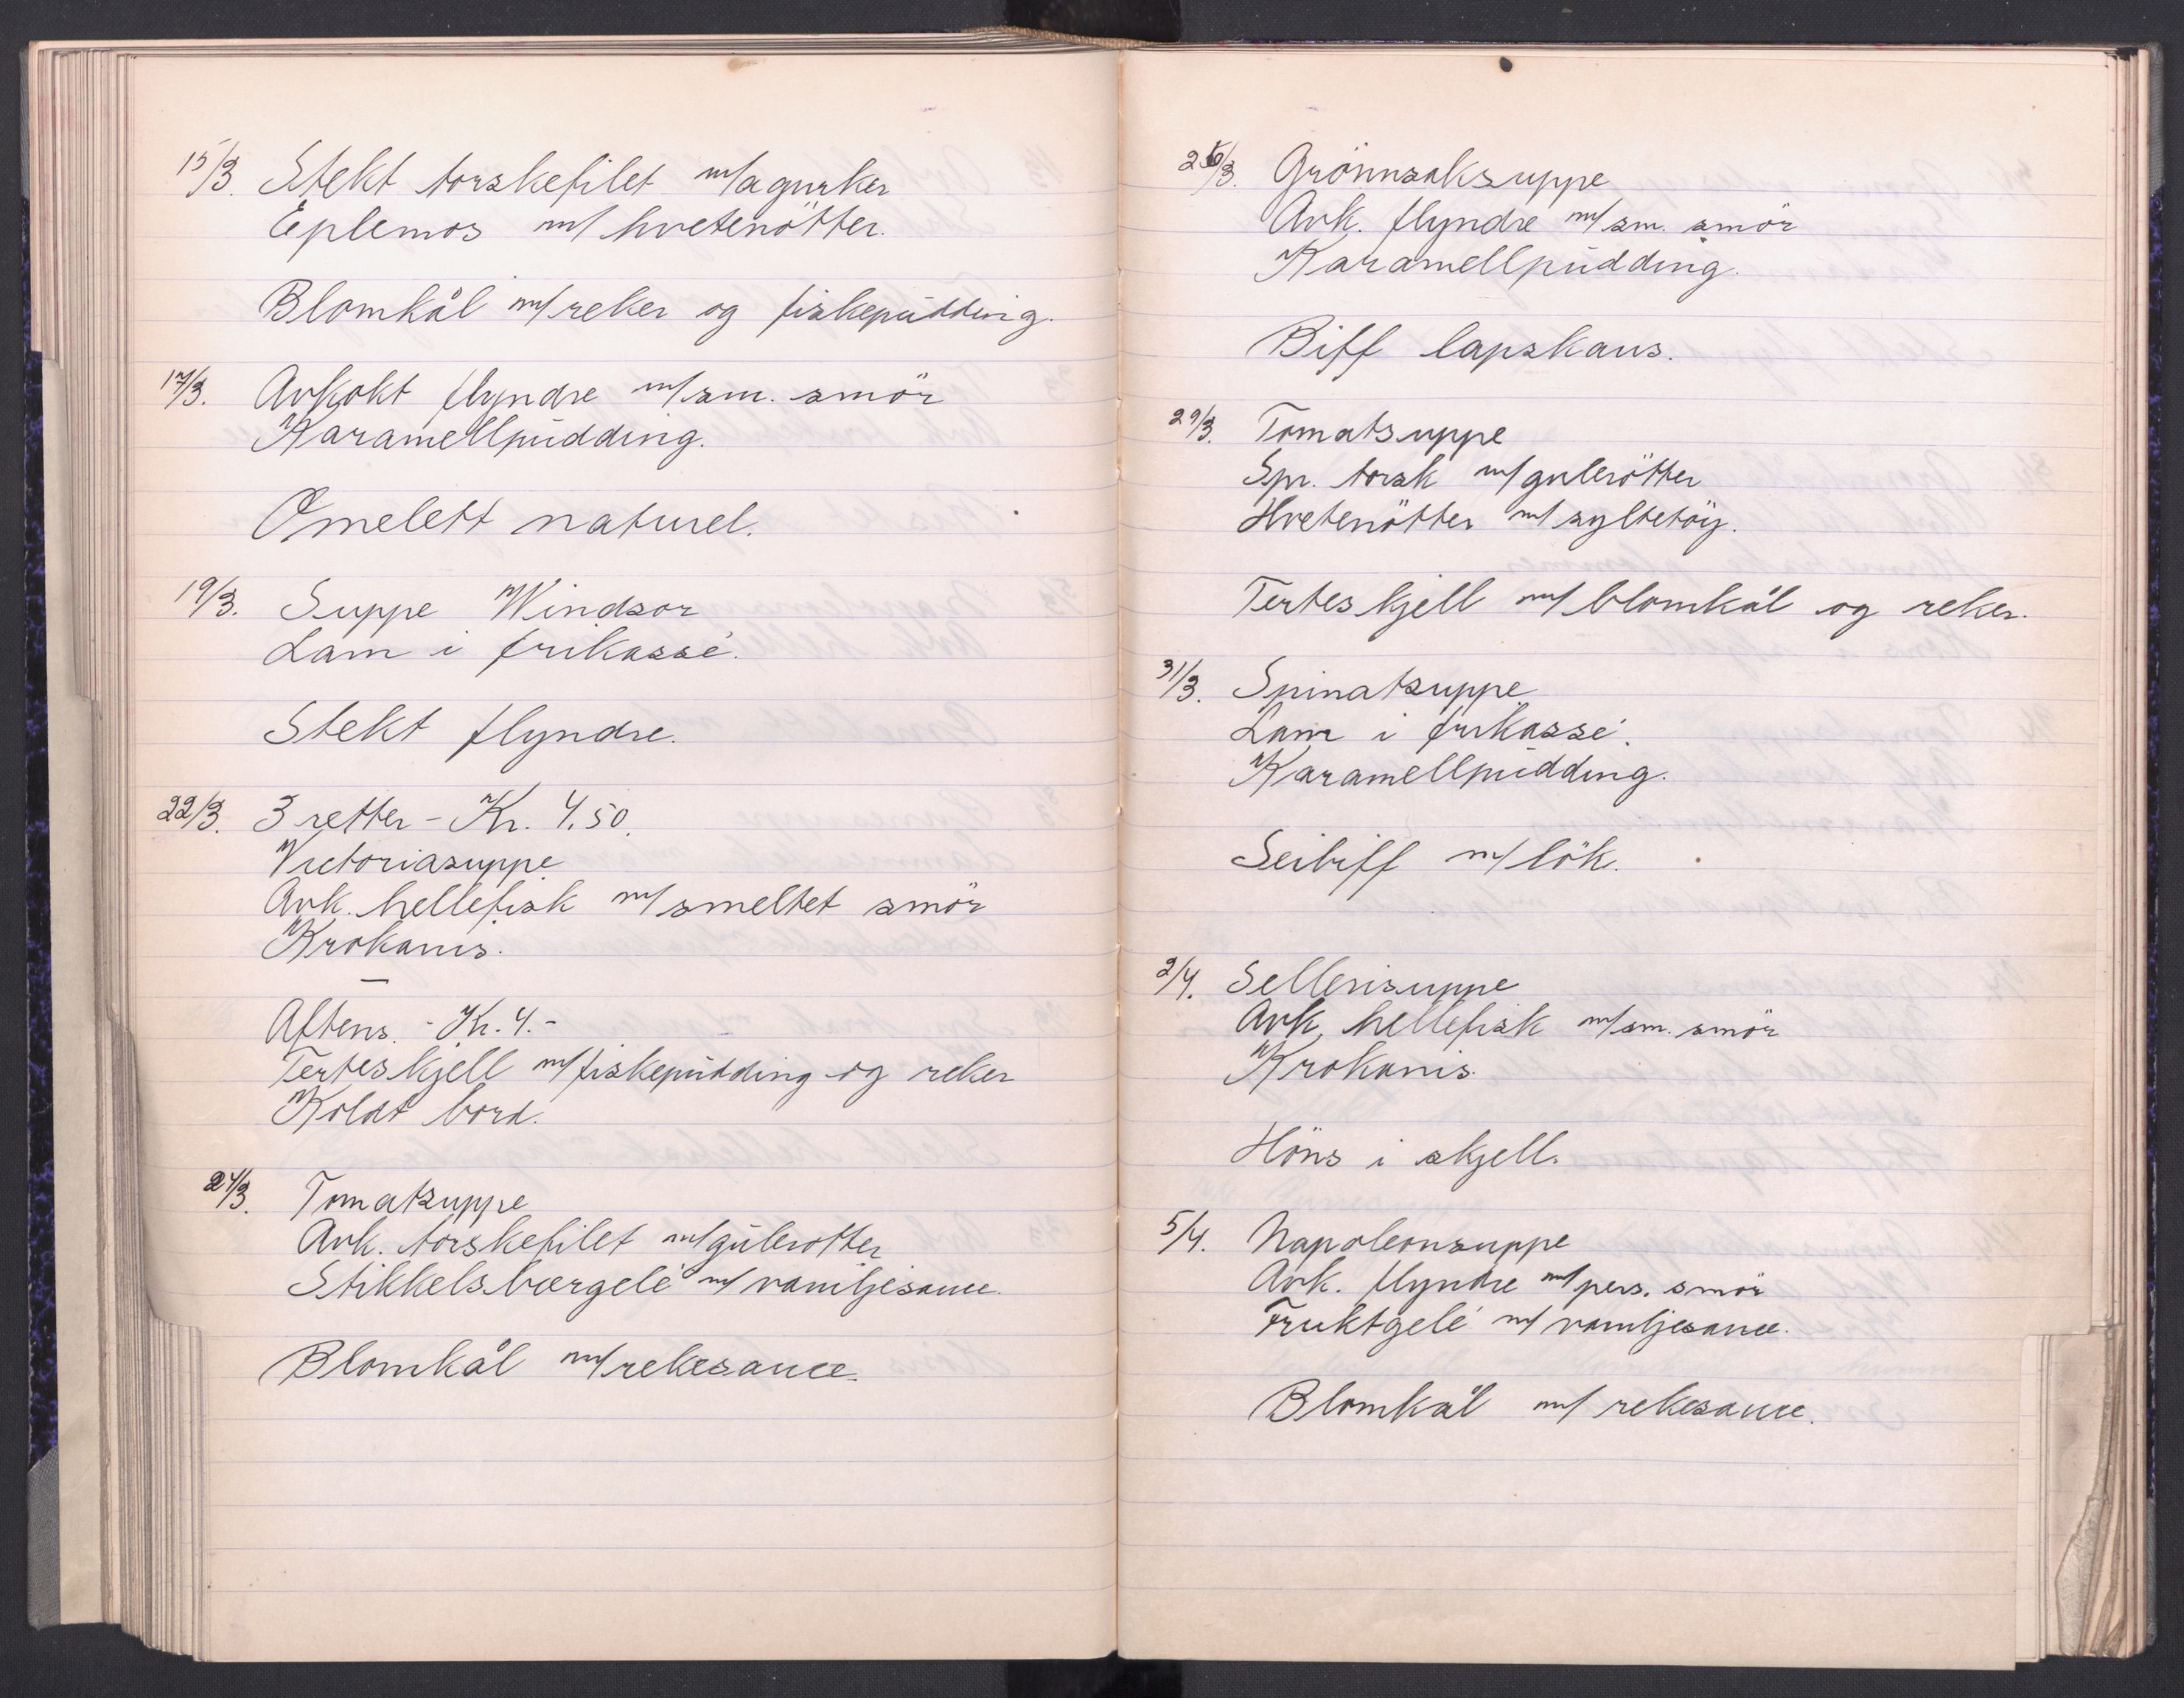 15/3. Stekt torskefilet m/agurker
Eplemos m/ hvetenötter.
Blomkål m/reker og fiskepudding.
17/3. Avkokt flyndre m/sm. smör
Karamellpudding.
Omelett naturel.
19/3. Suppe Windsor
Lam i frikassé.
Stekt flyndre.
22/3. 3 retter - Kr. 4.50.
Victoriasuppe
Avk. hellefisk m/smeltet smör
Krokanis.
Aftens. - Kr. 4.-
Terteskjell m/fiskepudding og reker
Koldt bord.
24/3. Tomatsuppe
Avk. torskefilet m/gulerotter
Stikkelsbærgelé m/ vaniljesauce.
Blomkål m/rekesauce.
26/3. Grönnsaksuppe
Avk. flyndre m/sm. smör
Karamellpudding.
Biff lapskaus.
29/3. Tomatsuppe
Spr. torsk m/gulerötter
Hvetenötter m/syltetöy.
Terteskjell m/ blomkål og reker.
31/3. Spinatsuppe
Lam i frikassé.
Karamellpudding.
Seibiff m/lök.
2/4. Sellerisuppe
Avk. hellefisk m/sm. smör
Krokanis.
Höns i skjell.
5/4. Napoleonsuppe
Avk. flyndre m/pers. smör
Fruktgelé m/ vaniljesauce.
Blomkål m/ rekesauce.